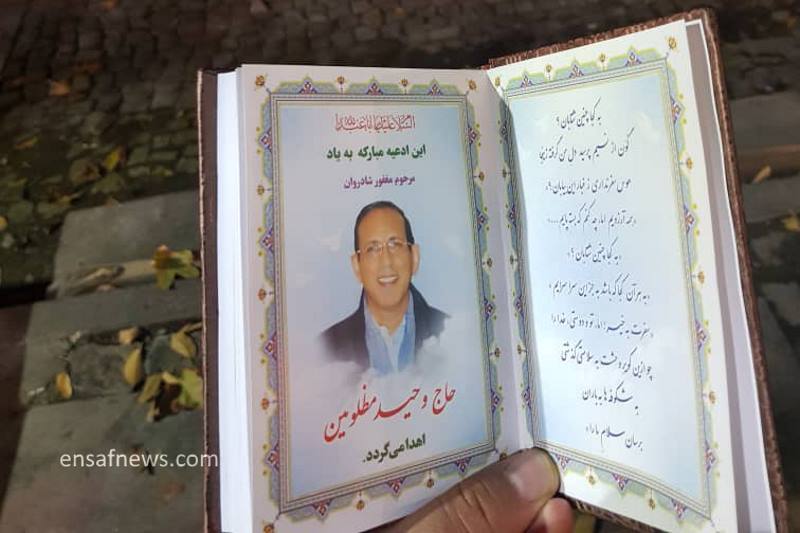 السلام علیک یا اباعبدالله
این ادعیه مبارکه به یاد
مرحوم مغفور شادروان
حاج وحید مظلومین
اهدا می‌گردد.
به کجا چنین شتابان؟
گون از نسیم پرسید دل من گرفته زینجا
هوس سفر نداری ز غبار این بیابان؟
همه آرزویم اما، چه کنم که بسته پایم....
به کجا چنین شتابان؟
به هر آن کجا که باشد به جز این سرا سرایم
سفرت به خیر! اما، تو و دوستی، خدا را
چو ازین کویر وحشت به سلامتی گذشتی
به شکوفه‌ها به باران
برسان سلام ما را
ensafnews.com